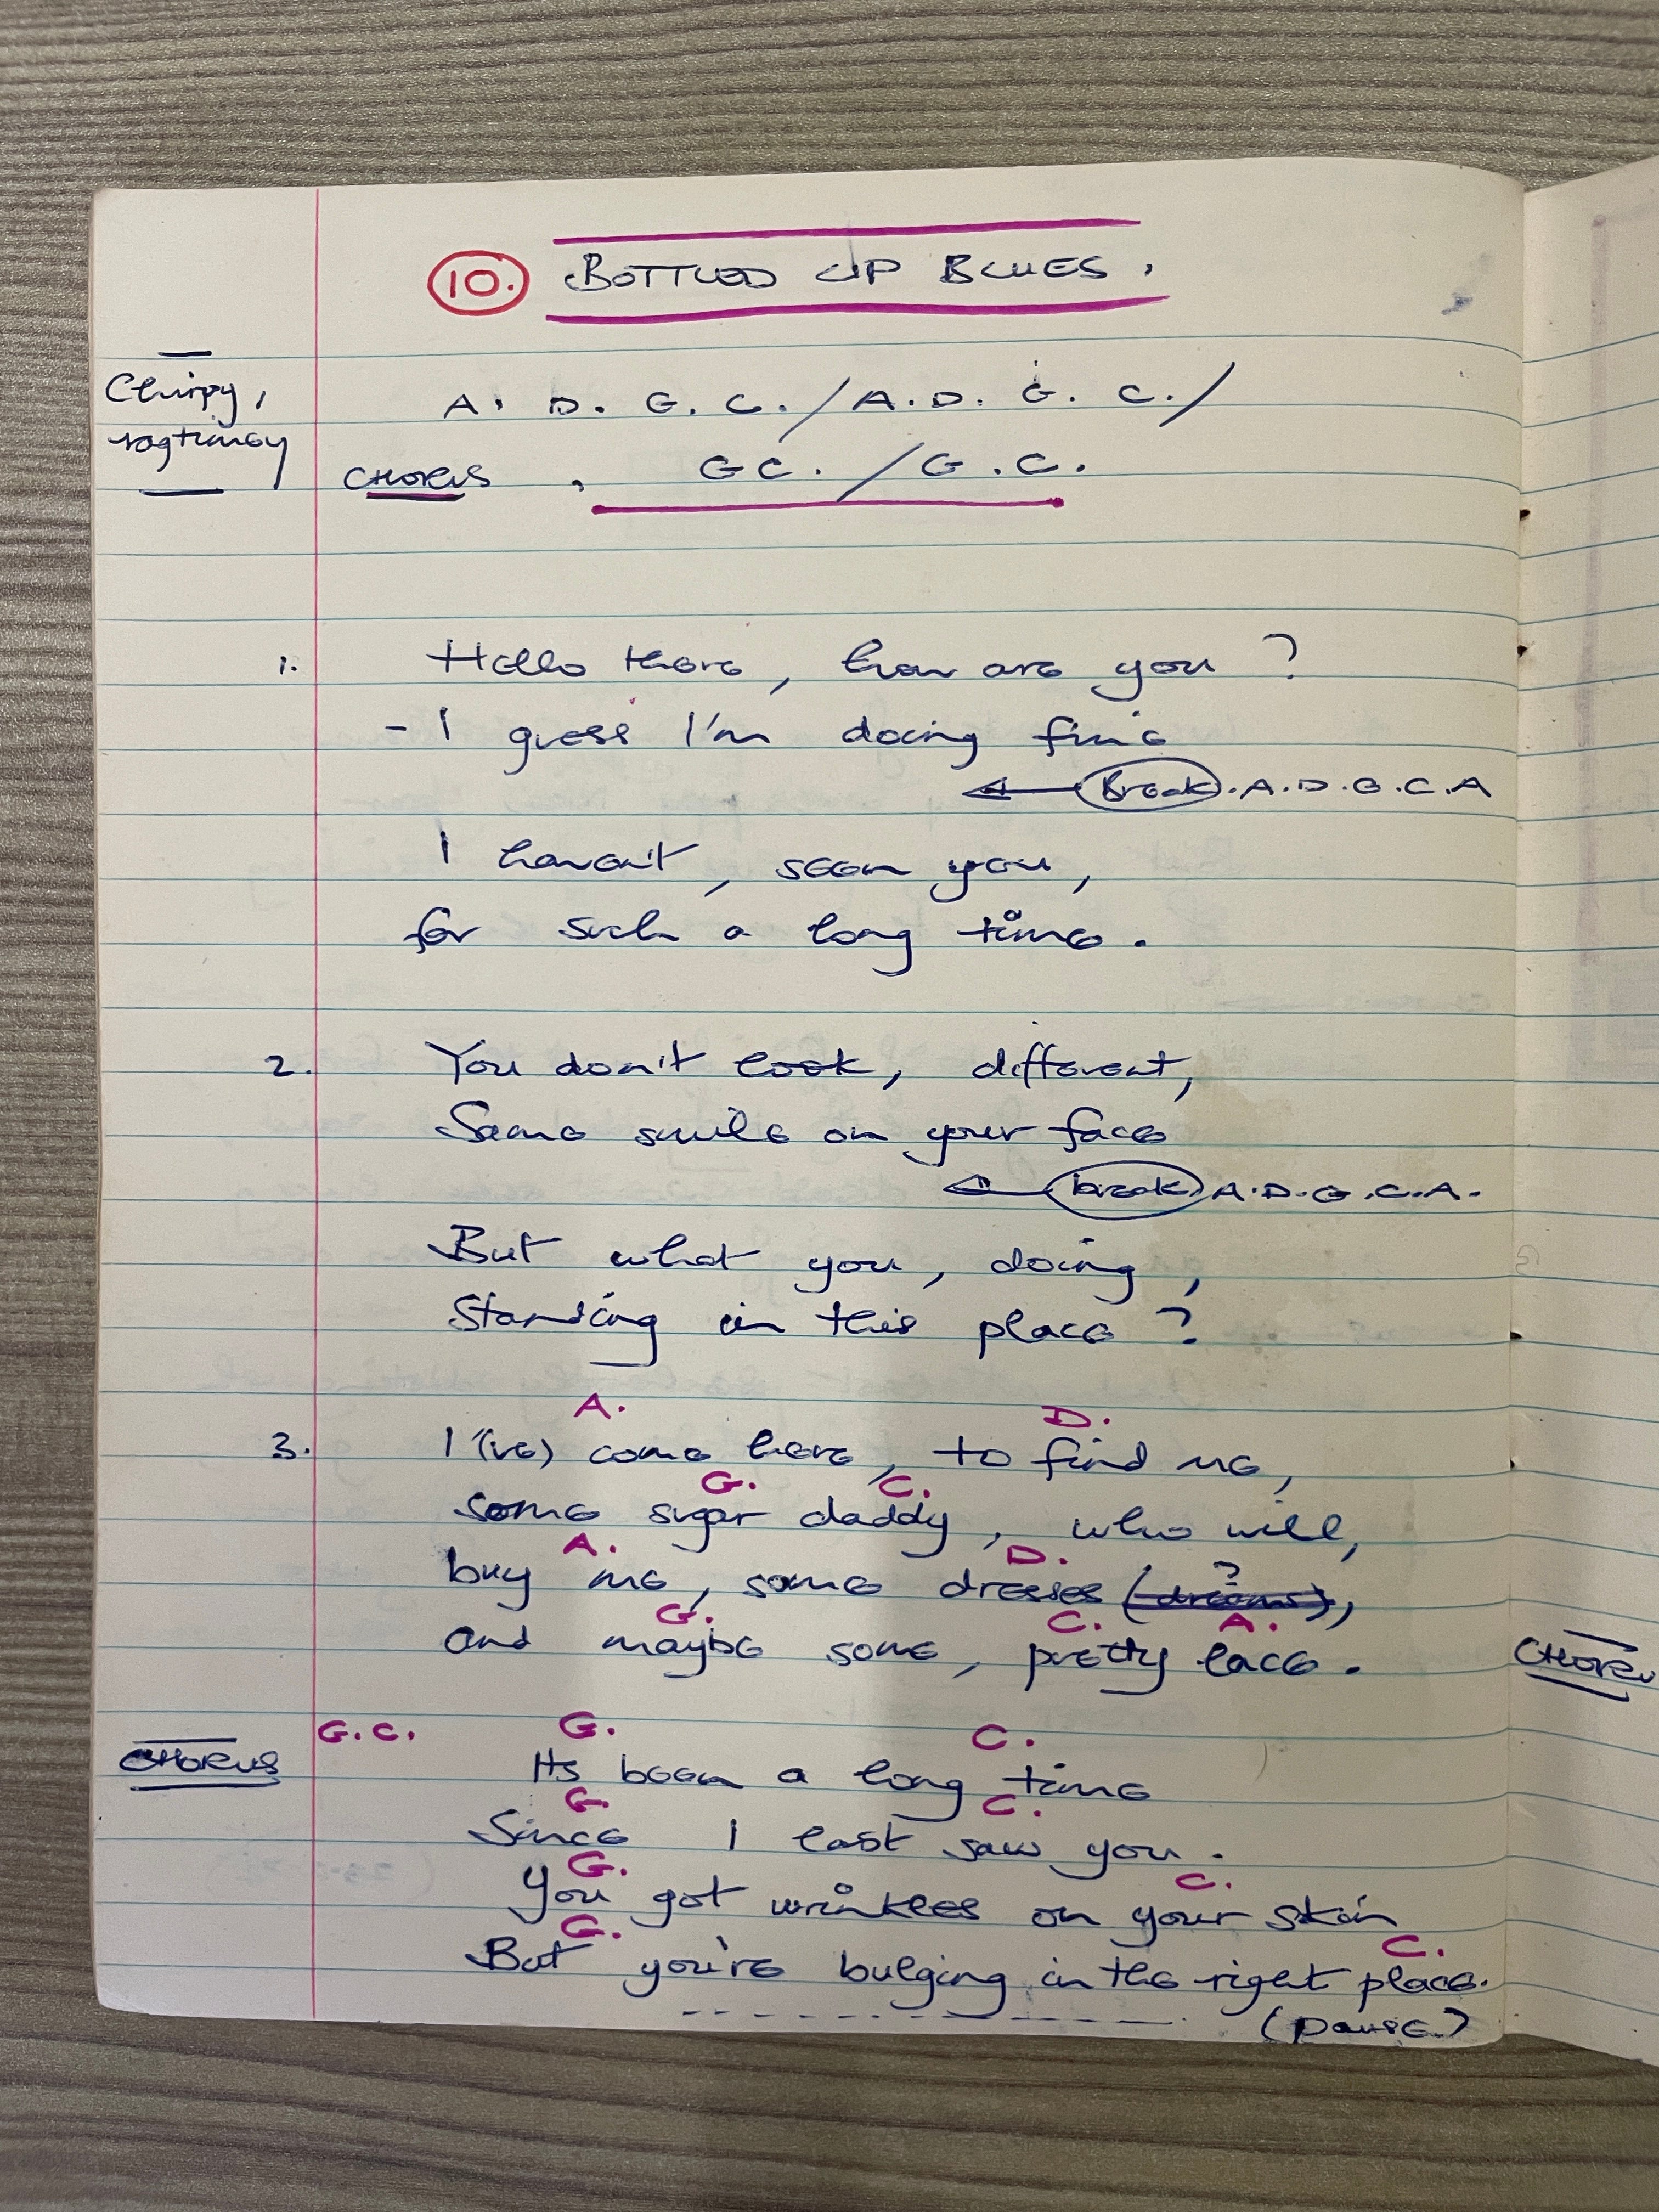 10. BOTTLED UP BLUES.
Chirpy,
ragtimey
A. D. G. C. / A. D. G. C. /
CHORUS, GC. / G.C.
1. Hello there, how are you?
- I guess I'm doing fine
Break. A.D.G.C.A
I haven't, seen you,
for such a long time.
2. You don't look, different,
Same smile on your face
break A.D.G.C.A.
But what you, doing,
Standing in this place?
A. D.
3. I ('ve) come here, to find me,
G. C.
some sugar daddy, who will,
A. D. ?
buy me, some dresses (dreams),
G. C. A.
and maybe some, pretty lace.
CHORU
G.C. G. C.
CHORUS Its been a long time
G. C.
Since I last saw you.
G. C.
You got wrinkles on your skin
G. C.
But you're bulging in the right place.
(pause)